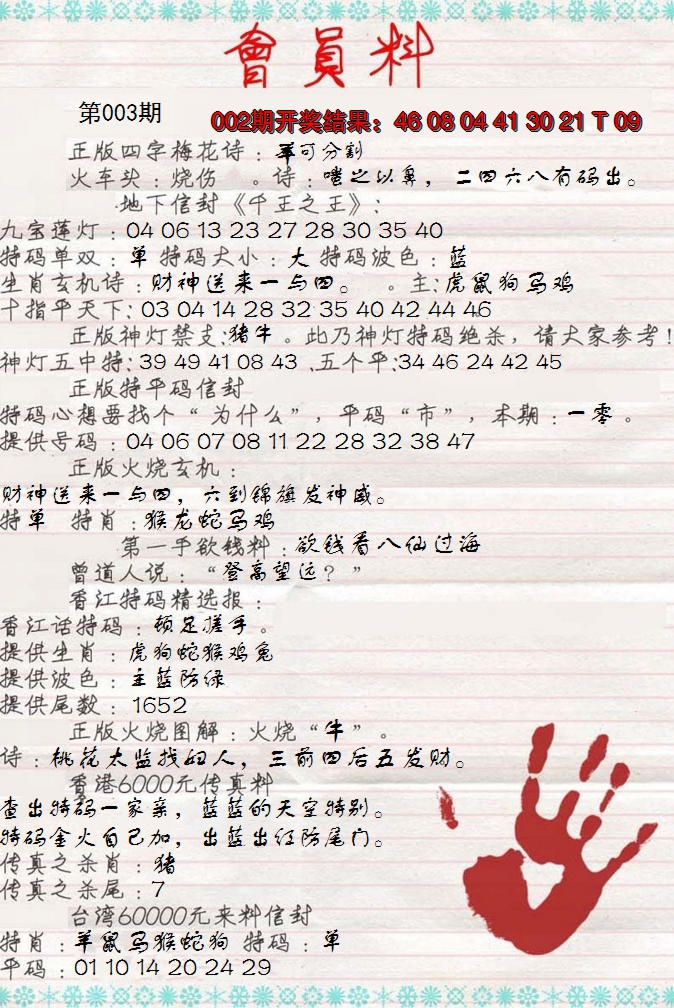 會員料
第003期
002期开奖结果：46 08 04 41 30 21 T 09
正版四字梅花诗：羊可分割
火车头：烧伤 。诗：嗤之以鼻，二四六八有码出。
地下信封《千王之王》：
九宝莲灯：04 06 13 23 27 28 30 35 40
特码单双：单 特码大小：大 特码波色：蓝
生肖玄机诗：财神送来一与四。 。主：虎鼠狗马鸡
十指平天下：03 04 14 28 32 35 40 42 44 46
正版神灯禁支：猪牛。此乃神灯特码绝杀，请大家参考！
神灯五中特：39 49 41 08 43 、五个平：34 46 24 42 45
正版特平码信封
特码心想要找个“为什么”，平码“市”，本期：一零。
提供号码：04 06 07 08 11 22 28 32 38 47
正版火烧玄机：
财神送来一与四，六到锦旗发神威。
特单 特肖：猴龙蛇马鸡
第一手欲钱料：欲钱看八仙过海
曾道人说：“登高望远？”
香江特码精选报：
香江话特码：顿足搓手。
提供生肖：虎狗蛇猴鸡兔
提供波色：主蓝防绿
提供尾数：1652
正版火烧图解：火烧“牛”。
诗：桃花太监找妇人，三前四后五发财。
香港6000元传真料
查出特码一家亲，蓝蓝的天空特别。
特码金火自己加，出蓝出红防尾门。
传真之杀肖：猪
传真之杀尾：7
台湾60000元来料信封
特肖：羊鼠马猴蛇狗 特码：单
平码：01 10 14 20 24 29